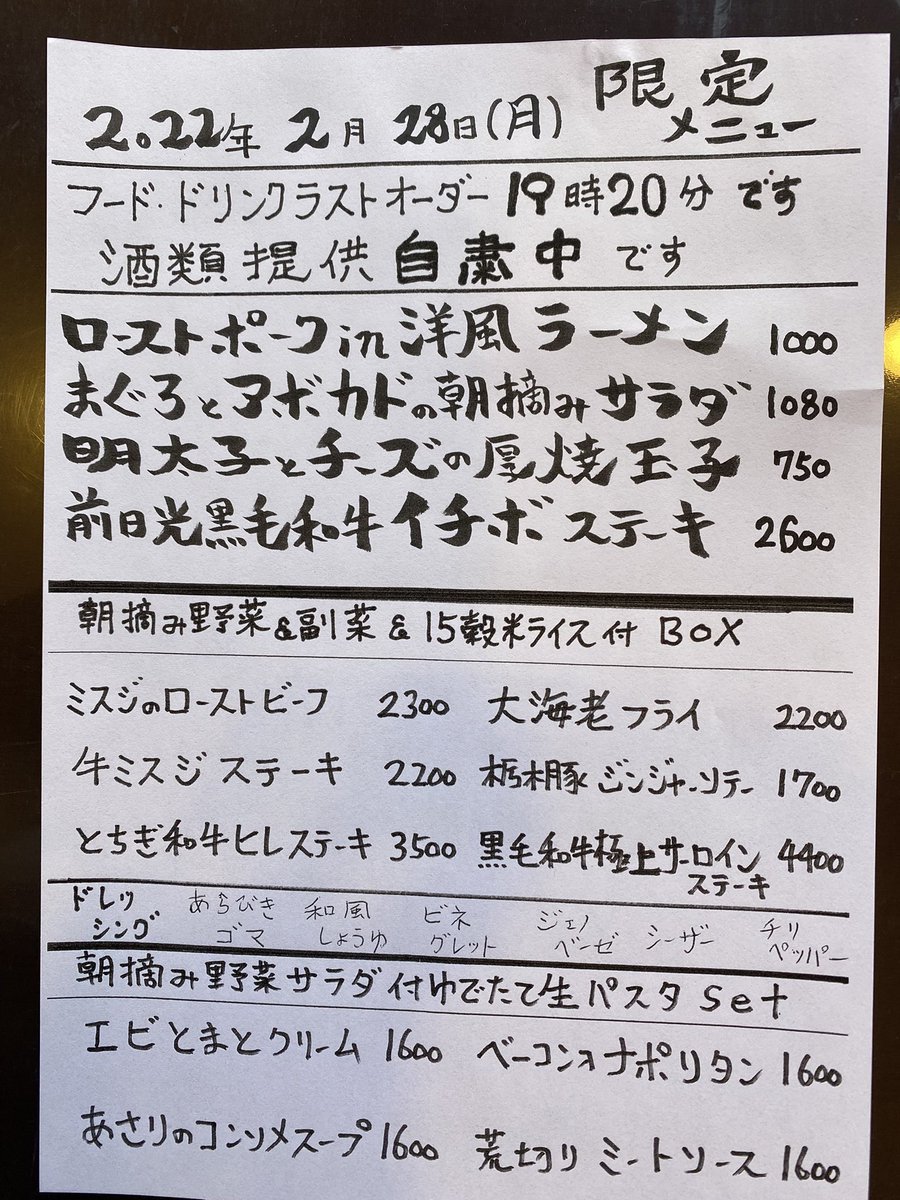 2022年 2月 28日(月) 限定メニュー
フード・ドリンクラストオーダー 19時20分 です
酒類提供 自粛中 です
ローストポーク in 洋風 ラーメン 1000
まぐろとアボカドの朝摘みサラダ 1080
明太子とチーズの厚焼玉子 750
前日光黒毛和牛イチボステーキ 2600
朝摘み野菜&副菜&15穀米ライス付 BOX
ミスジのローストビーフ 2300 大海老フライ 2200
牛ミスジステーキ 2200 栃木豚ジンジャーソテー 1700
とちぎ和牛ヒレステーキ 3500 黒毛和牛極上サーロインステーキ 4400
ドレッシング あらびきゴマ 和風しょうゆ ビネグレット ジェノベーゼ シーザー チリペッパー
朝摘み野菜サラダ付ゆでたて生パスタ Set
エビとまとクリーム 1600 ベーコンのナポリタン 1600
あさりのコンソメスープ 1600 荒切りミートソース 1600